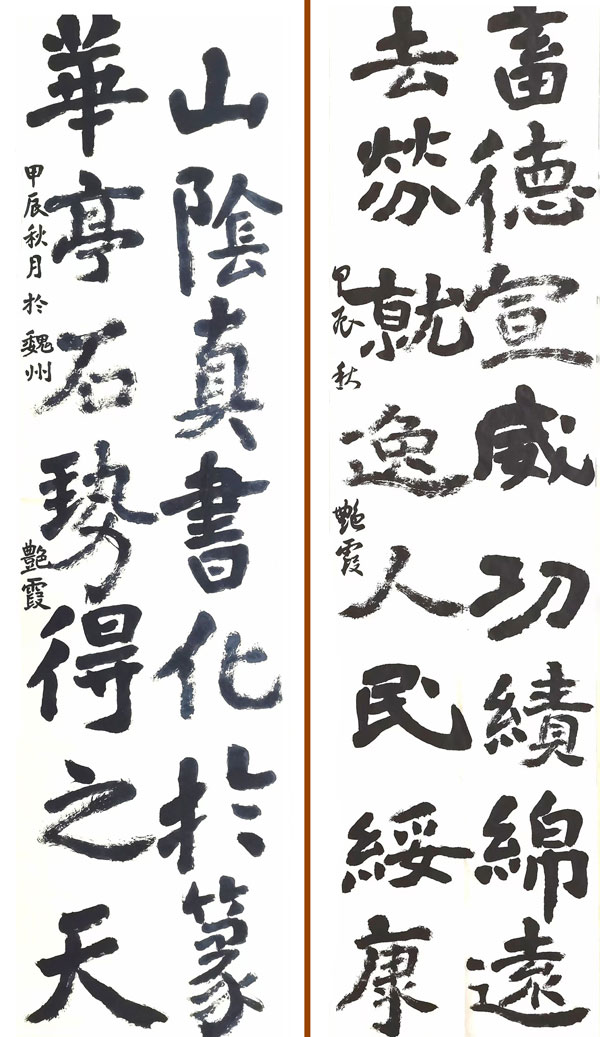 畜德宣威功績綿遠
去勞就逸人民綏康
甲辰秋 艷霞
山陰真書化於篆
華亭石勢得之天
甲辰秋月於魏州 艷霞